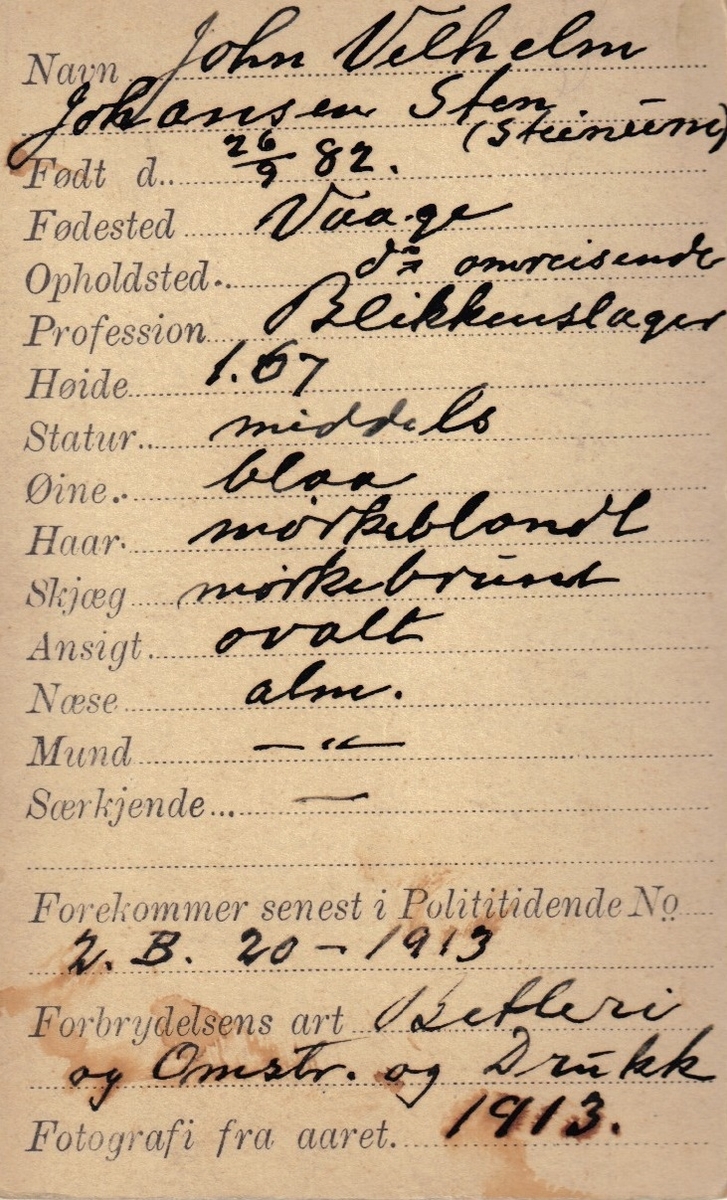 Navn John Vilhelm
Johansen Sten
(Steinum)
Født d. 26/9 82.
Fødested Vaage
Opholdsted. do omreisende
Profession Blikkenslager
Høide 1.67
Statur. middels
Øine. blaa
Haar. mørkeblondt
Skjæg mørkebrunt
Ansigt. ovalt
Næse alm.
Mund —〃—
Særkjende... —
Forekommer senest i Polititidende No
2. B. 20 – 1913
Forbrydelsens art Betleri
og Omstr. og Drukk
Fotografi fra aaret. 1913.